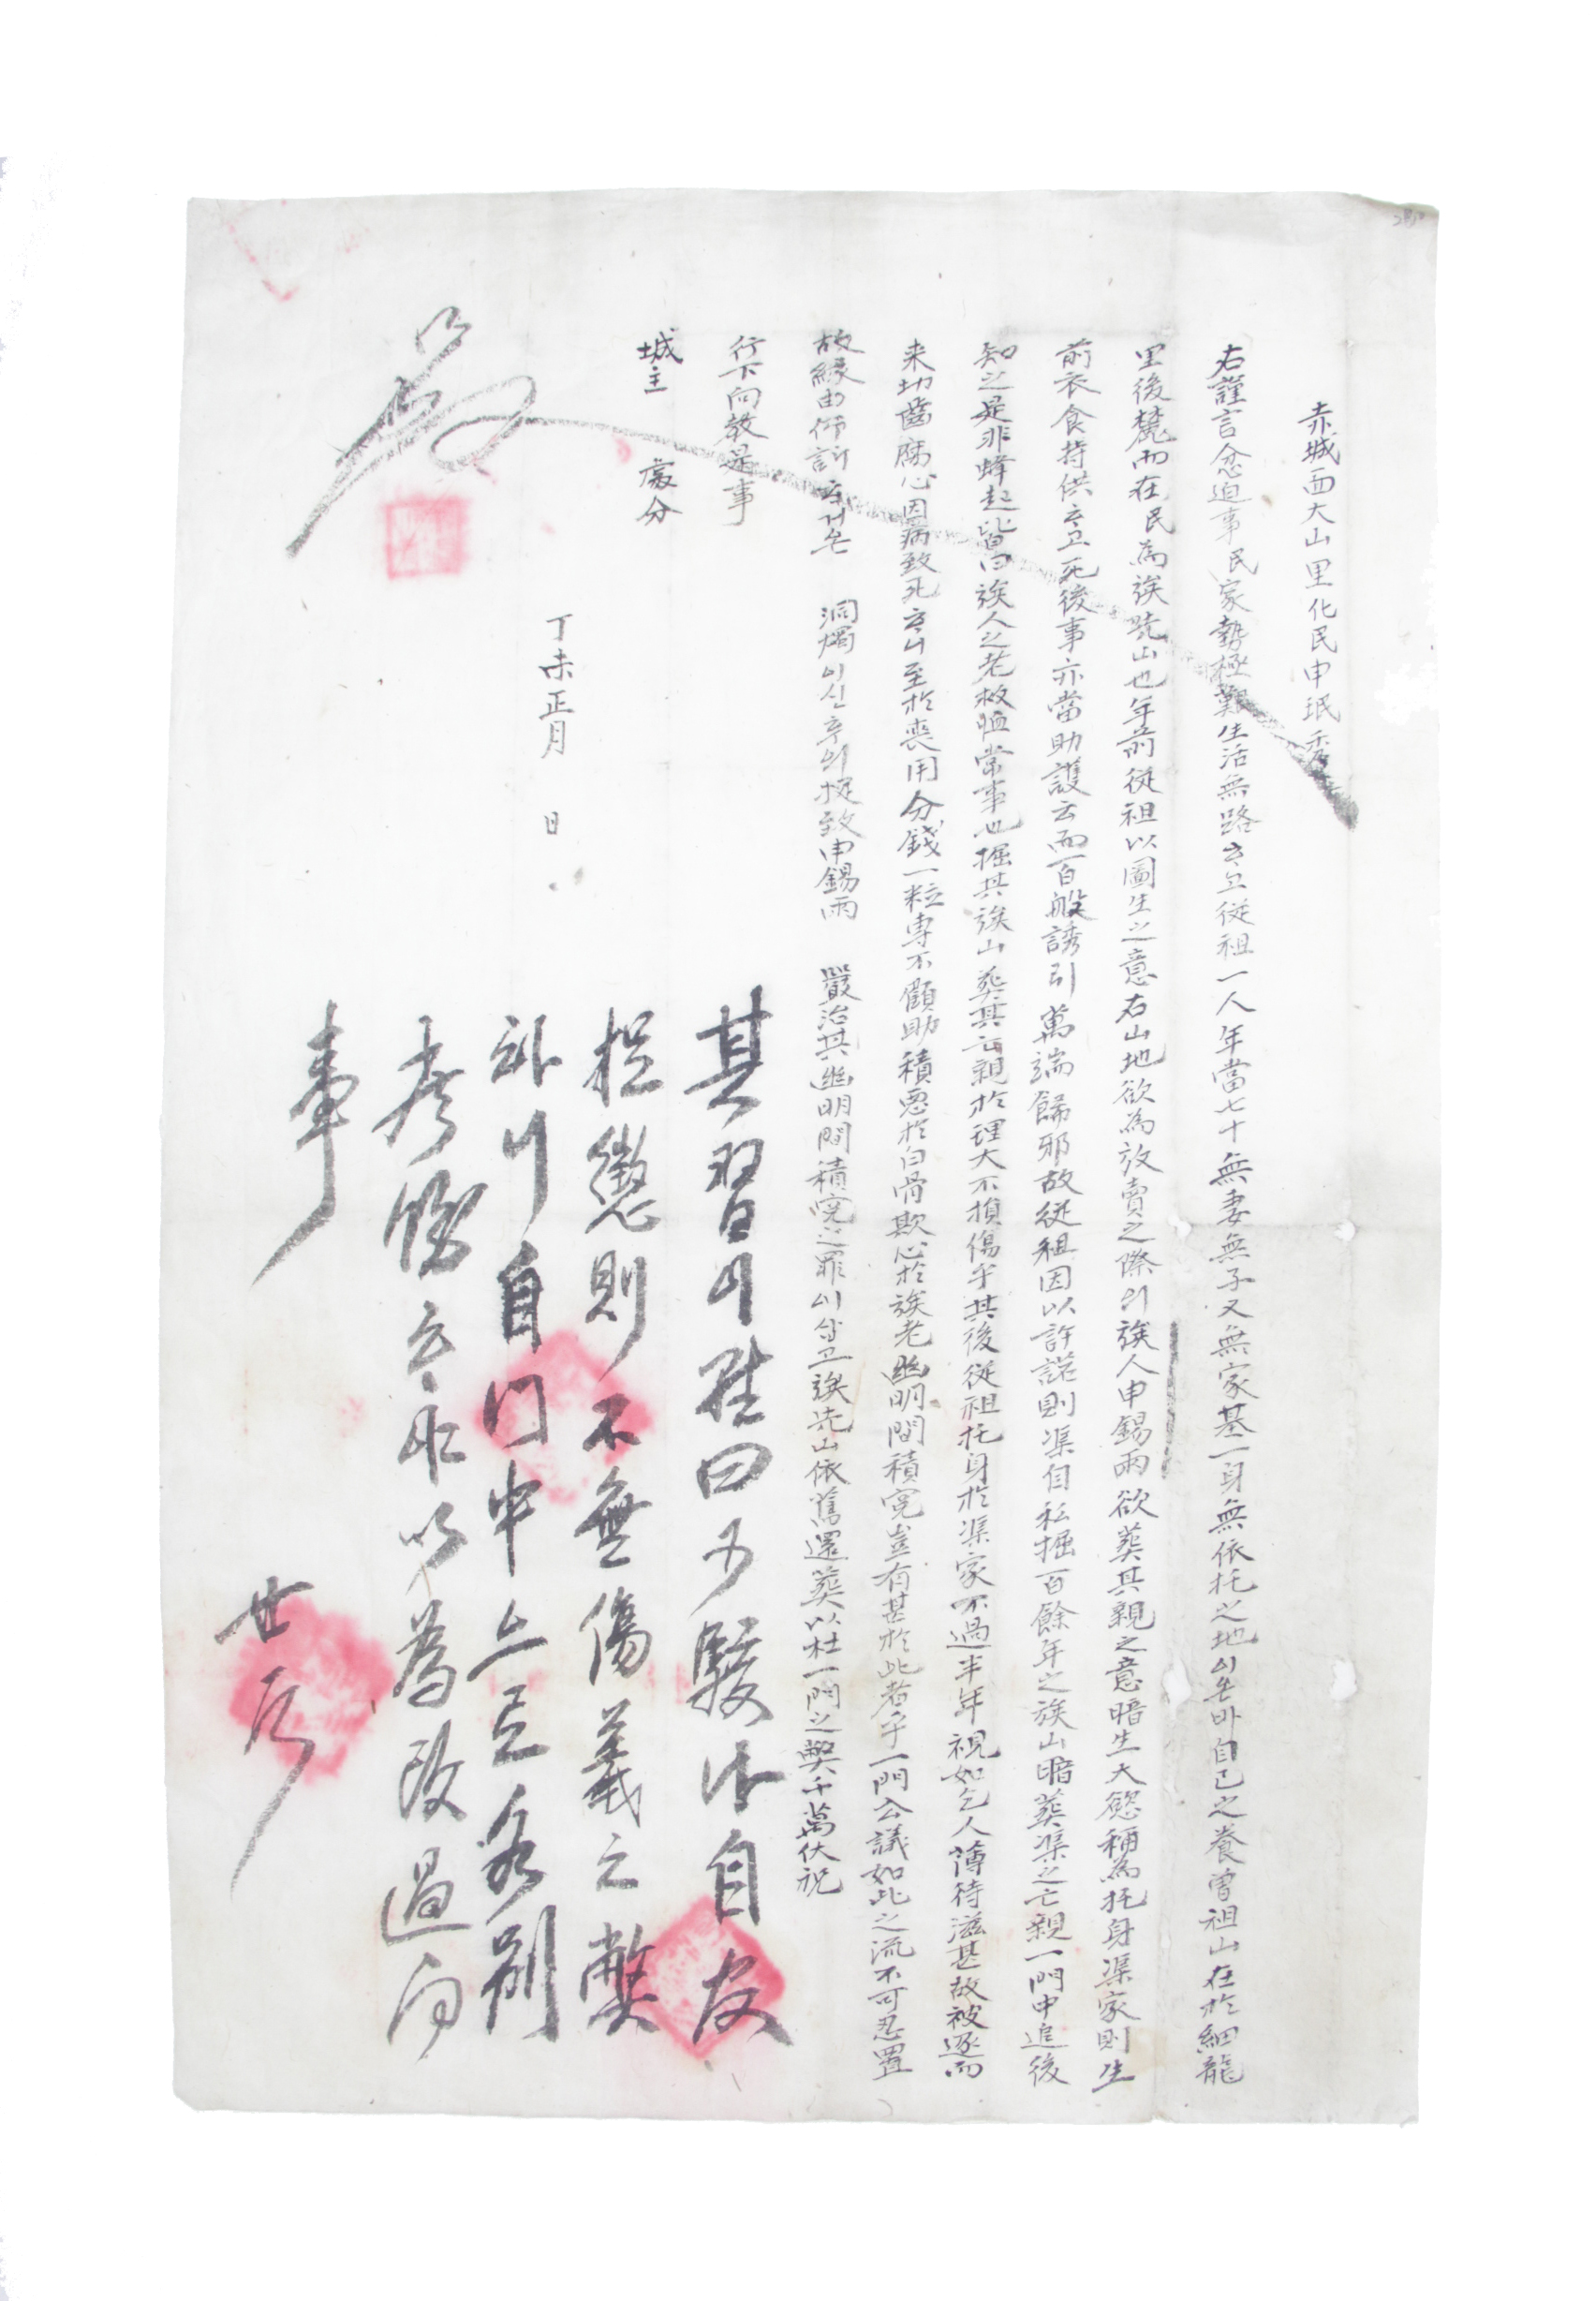 赤城面大山里化民申珉秀
右謹言忿迫事民家勢極艱生活無路是고從祖一人年當七十無妻無子又無家基一身無依托之地이온바自己之養曾祖山在於細龍
里後麓而在民為族先山也年前從祖以圖生之意右山地欲為放賣之際의族人申錫雨欲葬其親之意暗生大慾稱為托身渠家則生
前衣食持供고死後事亦當助護云而百般誘引萬端歸邪故從祖因以許諾則渠自私掘百餘年之族山暗葬渠之亡親一門中追後
知之是非蜂起皆曰族人之老救恤常事也掘其族山葬其亡親於理大不損傷乎其後從祖托身於渠家不過半年視如乞人薄待滋甚故被逐而
来切齒腐心因病致死니至於喪用分錢一粒專不顧助積惡於白骨欺心於族老幽明間積寃豈有甚於此者乎一門公議如此之流不可忍置
故緣由仰訴거온 洞燭이신후의捉致申錫雨 嚴治其幽明間積寃之罪시고族先山依舊還葬以杜一門之弊千萬伏祝
行下向教是事
城主 處分
丁未正月 日
其習이雖曰可駭나自官
捉懲則不無傷義之弊
하니自門中으로各別
孝悌以為改過向
事
卄六